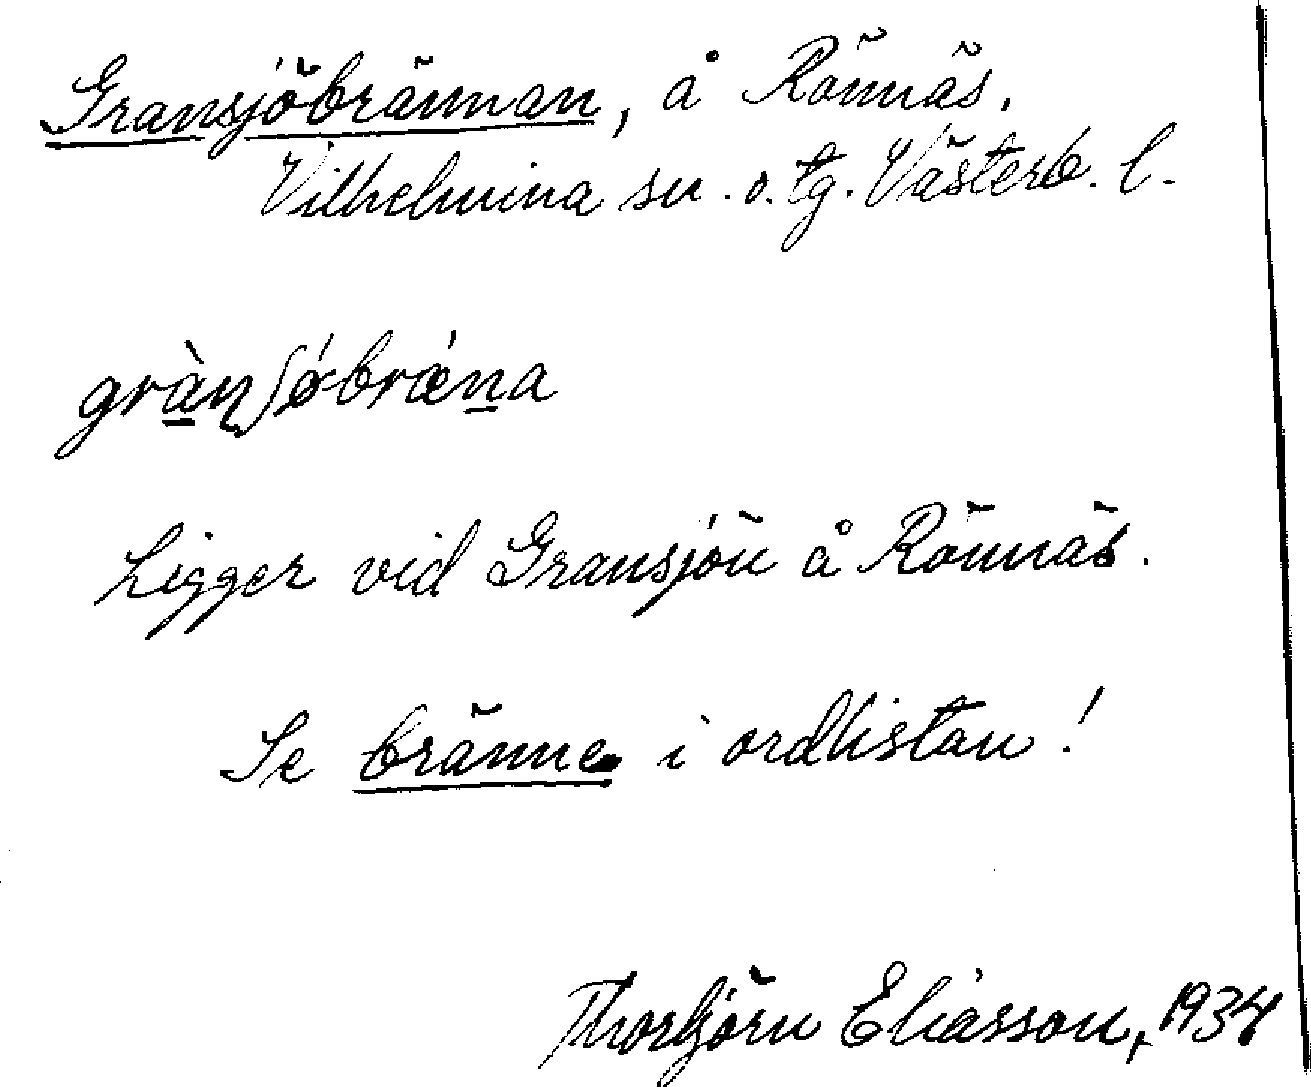 Gransjöbrännan, å Rönnäs.
Vilhelmina sn. o. tg. Västerb. l.
gràn̲ʃǿbrǽn̲a
Ligger vid Gransjön å Rönnäs.
Se bränne i ordlistan!
Thorbjörn Eliasson, 1934